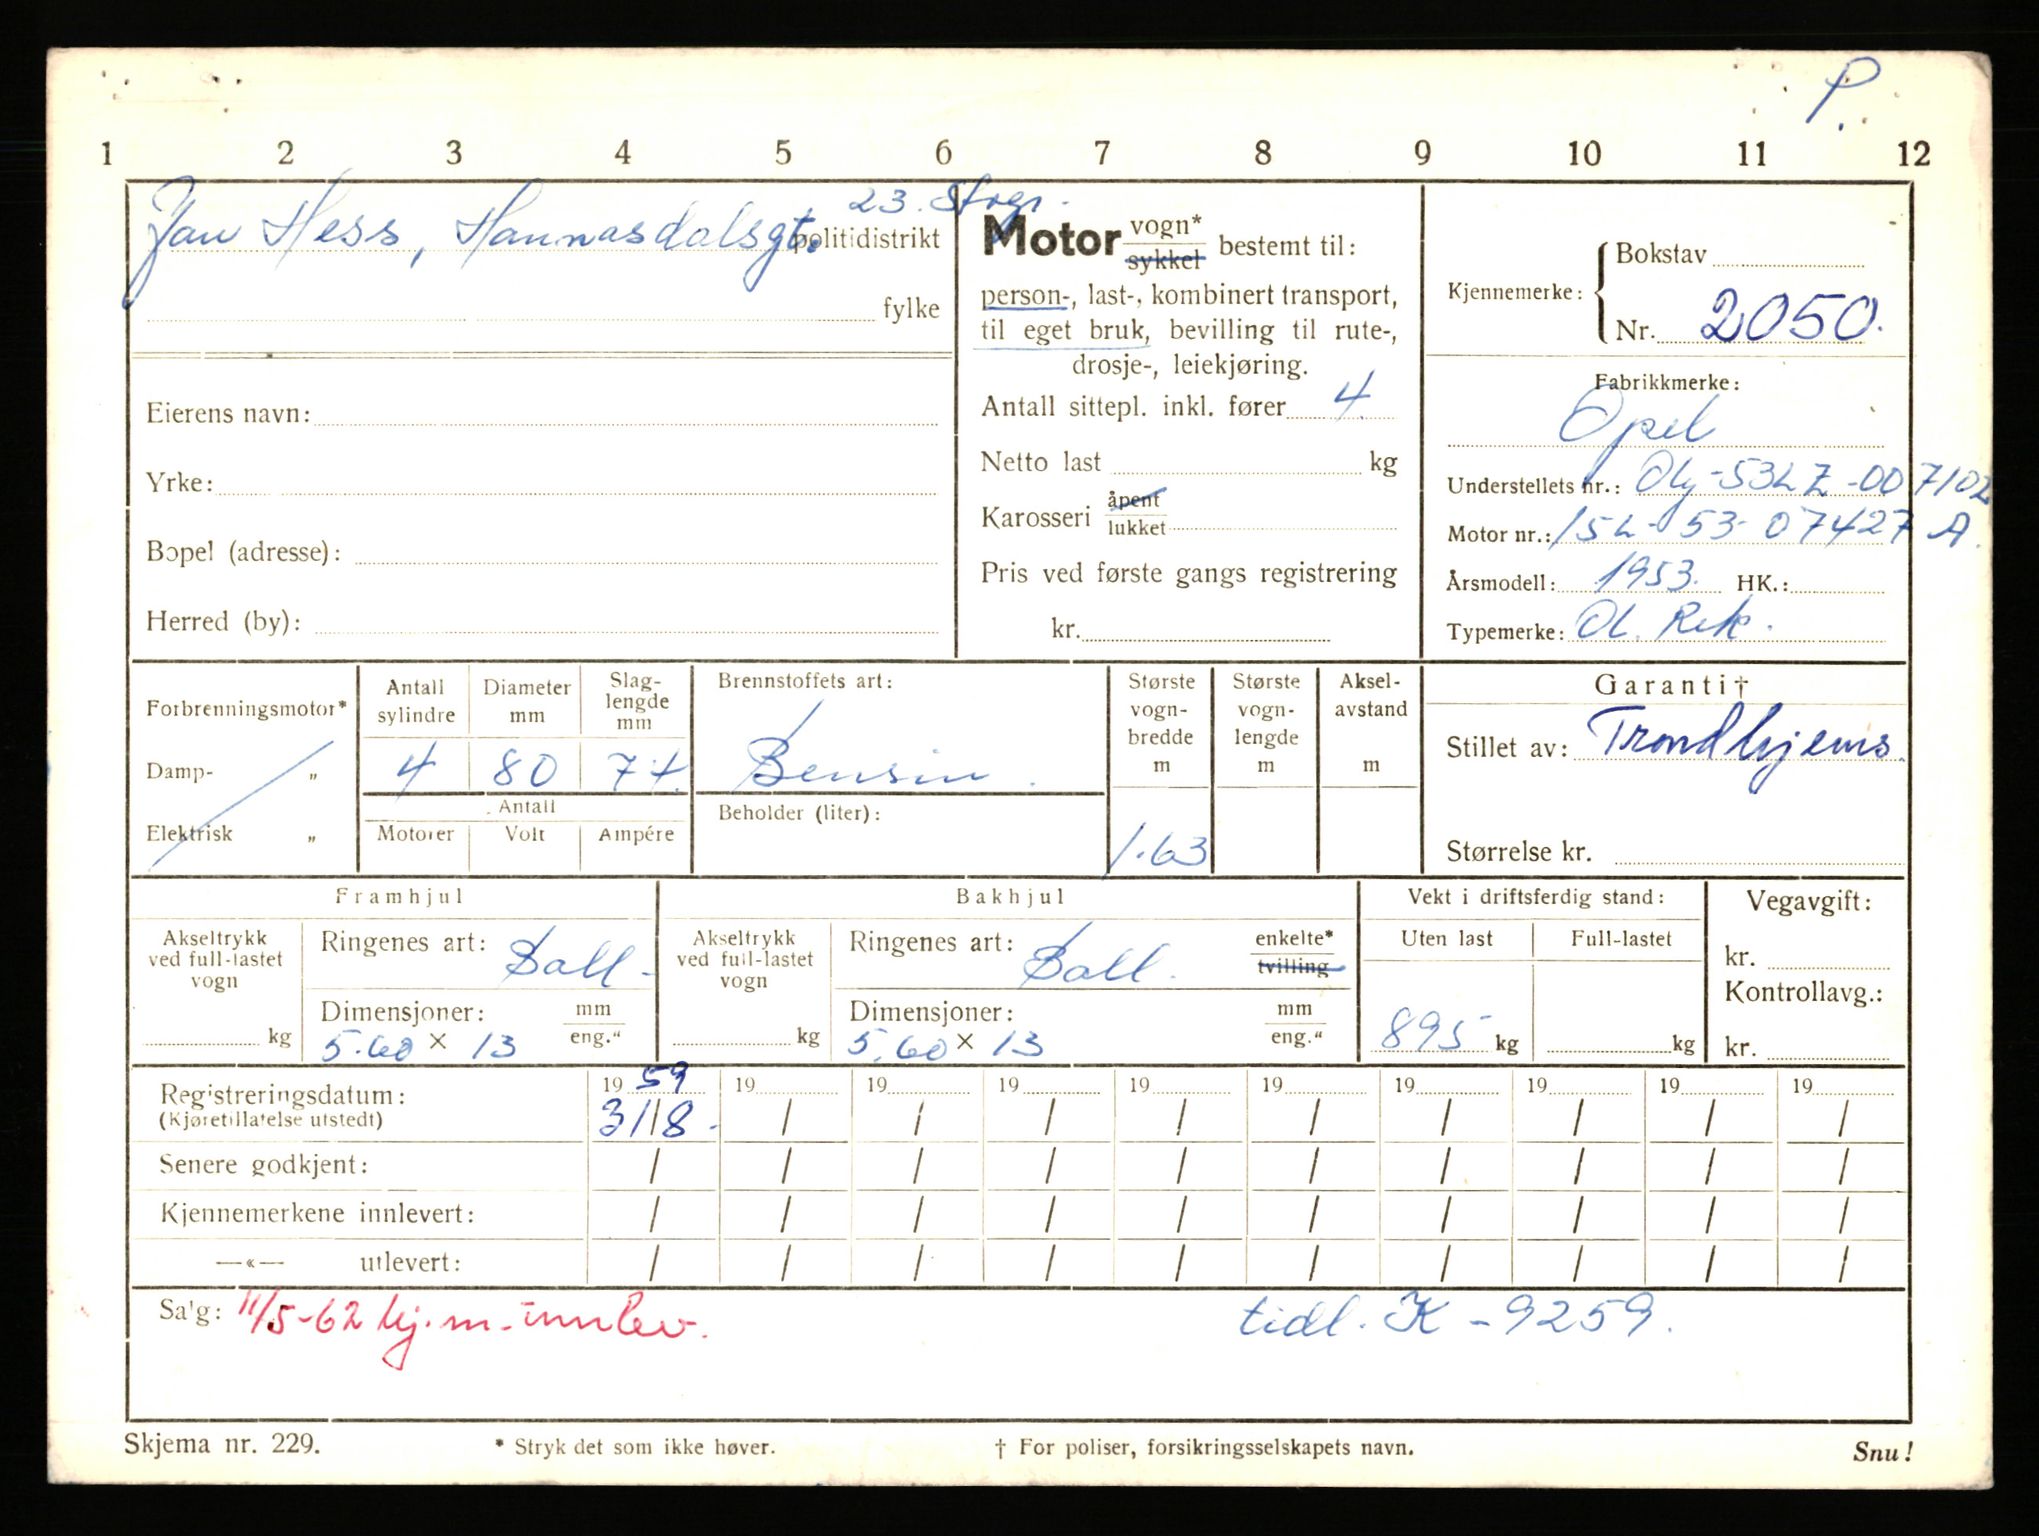 P.
1 2 3 4 5 6 7 8 9 10 11 12
Jan Hess, Hannasdalsgt. 23. Stvgr.
politidistrikt
fylke
Eierens navn:
Yrke:
Bopel (adresse):
Herred (by):
Motor vogn* sykkel bestemt til:
person-, last-, kombinert transport,
til eget bruk, bevilling til rute-,
drosje-, leiekjøring.
Antall sittepl. inkl. fører 4.
Netto last kg
Karosseri åpent lukket
Pris ved første gangs registrering
kr.
Kjennemerke: Bokstav
Nr. 2050.
Fabrikkmerke:
Opel
Understellets nr.: Oly-53LZ-007102
Motor nr.: 15L-53-07427 A.
Årsmodell: 1953. HK.:
Typemerke: Ol. Rek.
Forbrenningsmotor*
Damp- „
Elektrisk „
Antall sylindre
4
Diameter mm
80
Slag-lengde mm
74.
Antall
Motorer Volt Ampére
Brennstoffets art:
Bensin.
Beholder (liter):
Største vogn-bredde m
1.63
Største vogn-lengde m
Aksel-avstand m
Garanti†
Stillet av: Trondhjems.
Størrelse kr.
Framhjul
Akseltrykk ved full-lastet vogn
kg
Ringenes art: Ball-
Dimensjoner: mm eng."
5.60 × 13
Bakhjul
Akseltrykk ved full-lastet vogn
kg
Ringenes art: Ball. enkelte* tvilling
Dimensjoner: mm eng."
5.60 × 13
Vekt i driftsferdig stand:
Uten last Full-lastet
895 kg kg
Vegavgift:
kr.
Kontrollavg.:
kr.
Registreringsdatum: 19 59 19 19 19 19 19 19 19 19 19
(Kjøretillatelse utstedt) 31/8- / / / / / / / / /
Senere godkjent: / / / / / / / / / /
Kjennemerkene innlevert: / / / / / / / / / /
—«— utlevert: / / / / / / / / / /
Salg: 11/5-62 kj.m.-innlev. tidl. K-9259.
Skjema nr. 229. * Stryk det som ikke høver. † For poliser, forsikringsselskapets navn. Snu!